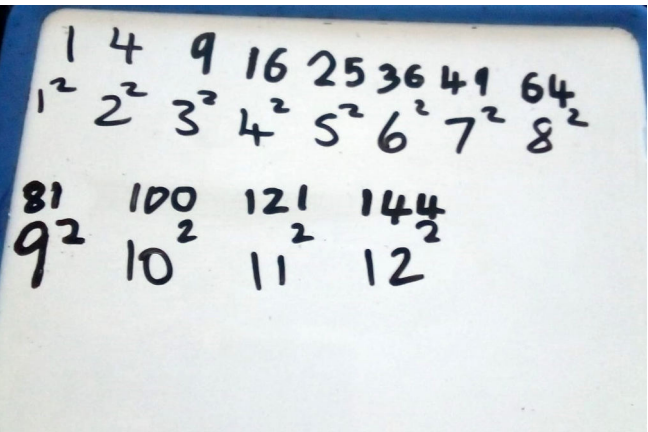 1 4 9 16 25 36 49 64
1² 2² 3² 4² 5² 6² 7² 8²
81 100 121 144
9² 10² 11² 12²